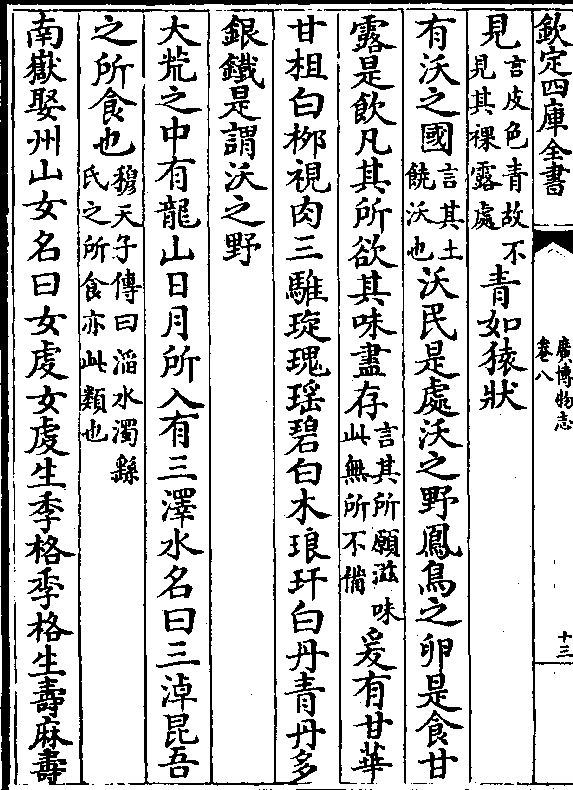 欽定四庫全書
廣博物志
卷八
十三
見言皮色青故不見其裸露處青如猿狀
有沃之國言其土饒沃也沃民是處沃之野鳳鳥之卵是食甘
露是飲凡其所欲其味盡存言其所願滋味此無所不備爰有甘華
甘柤白栁視肉三騅琁瑰瑶碧白木琅玕白丹青丹多
銀鐵是謂沃之野
大荒之中有龍山日月所入有三澤水名曰三淖昆吾
之所食也穆天子傳曰滔水濁繇氏之所食亦此類也
南嶽娶州山女名曰女虔女虔生季格季格生壽麻壽